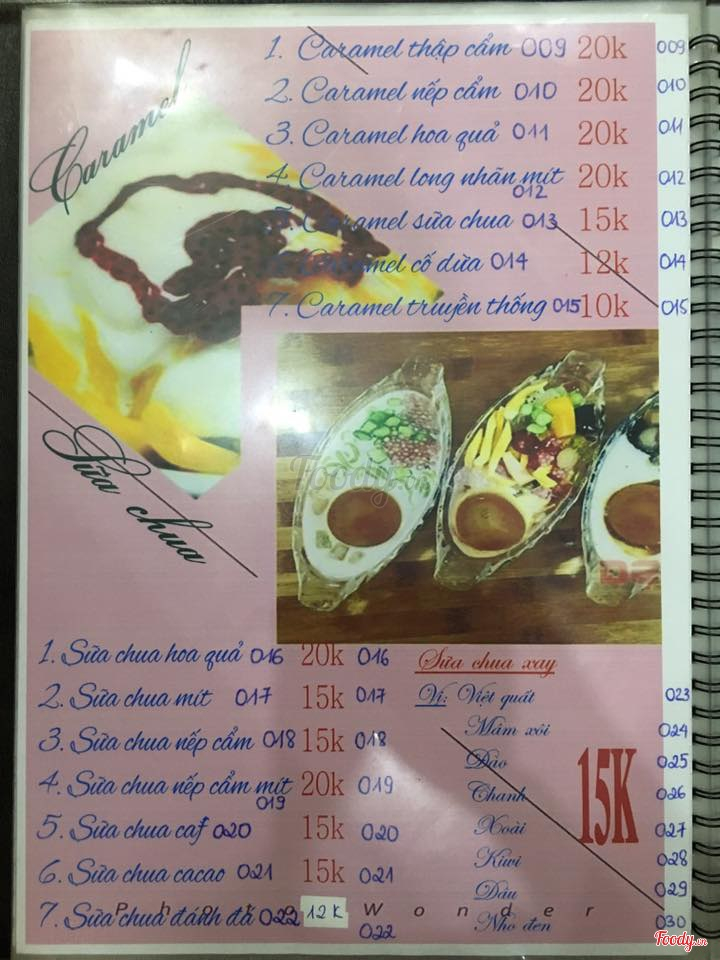 Caramel
1. Caramel thập cẩm 009 20k 009
2. Caramel nếp cẩm 010 20k 010
3. Caramel hoa quả 011 20k 011
4. Caramel long nhãn mít 20k 012
012
5. Caramel sữa chua 013 15k 013
6. Caramel cố dừa 014 12k 014
7. Caramel truyền thống 015 10k 015
Foody.vn
Sữa chua
1. Sữa chua hoa quả 016 20k 016
2. Sữa chua mít 017 15k 017
3. Sữa chua nếp cẩm 018 15k 018
4. Sữa chua nếp cẩm mít 20k 019
019
5. Sữa chua caf 020 15k 020
6. Sữa chua cacao 021 15k 021
7. Sữa chua đánh đá 022 12K
022
Sữa chua xay
Vị: Việt quất 023
Mâm xôi 024
Đào 025
Chanh 026
15K
Xoài 027
Kiwi 028
Dâu 029
Nho đen 030
Wonder
Foody.vn